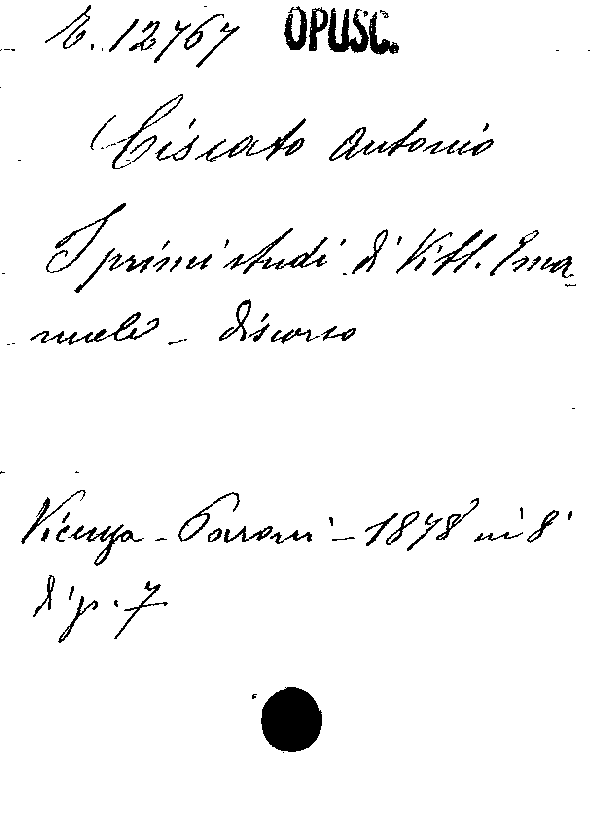 E. 12767 OPUSC.
Ciscato Antonio
I primi studi di Vitt. Ema-
nuele - discorso
Vicenza - Paroni - 1878 in 8°
di p. 7